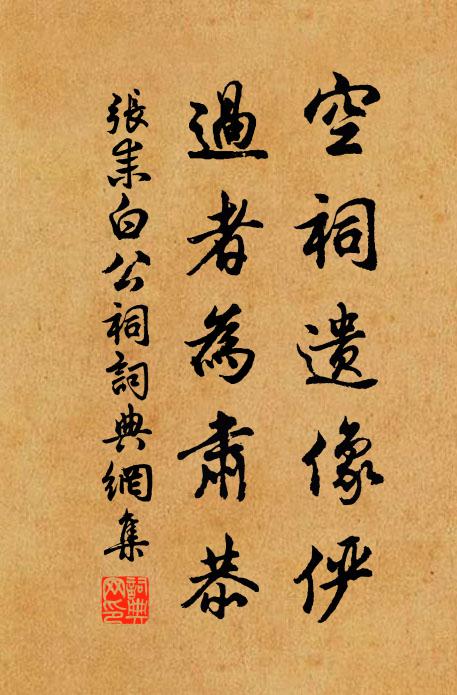 空祠遺像俨
過者為肅恭
張耒白公祠詞典網集
詞典網印